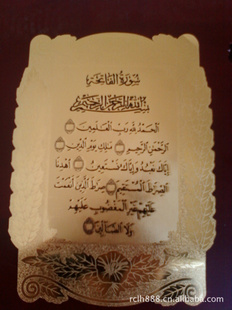 سورة الفاتحة
بسم الله الرحمن الرحيم
الحمد لله رب العلمين
الرحمن الرحيم ملك يوم الدين
إياك نعبد وإياك نستعين اهدنا
الصراط المستقيم صراط الذين أنعمت
عليهم غير المغضوب عليهم
ولا الضالين
rclh888.cn.alibaba.com